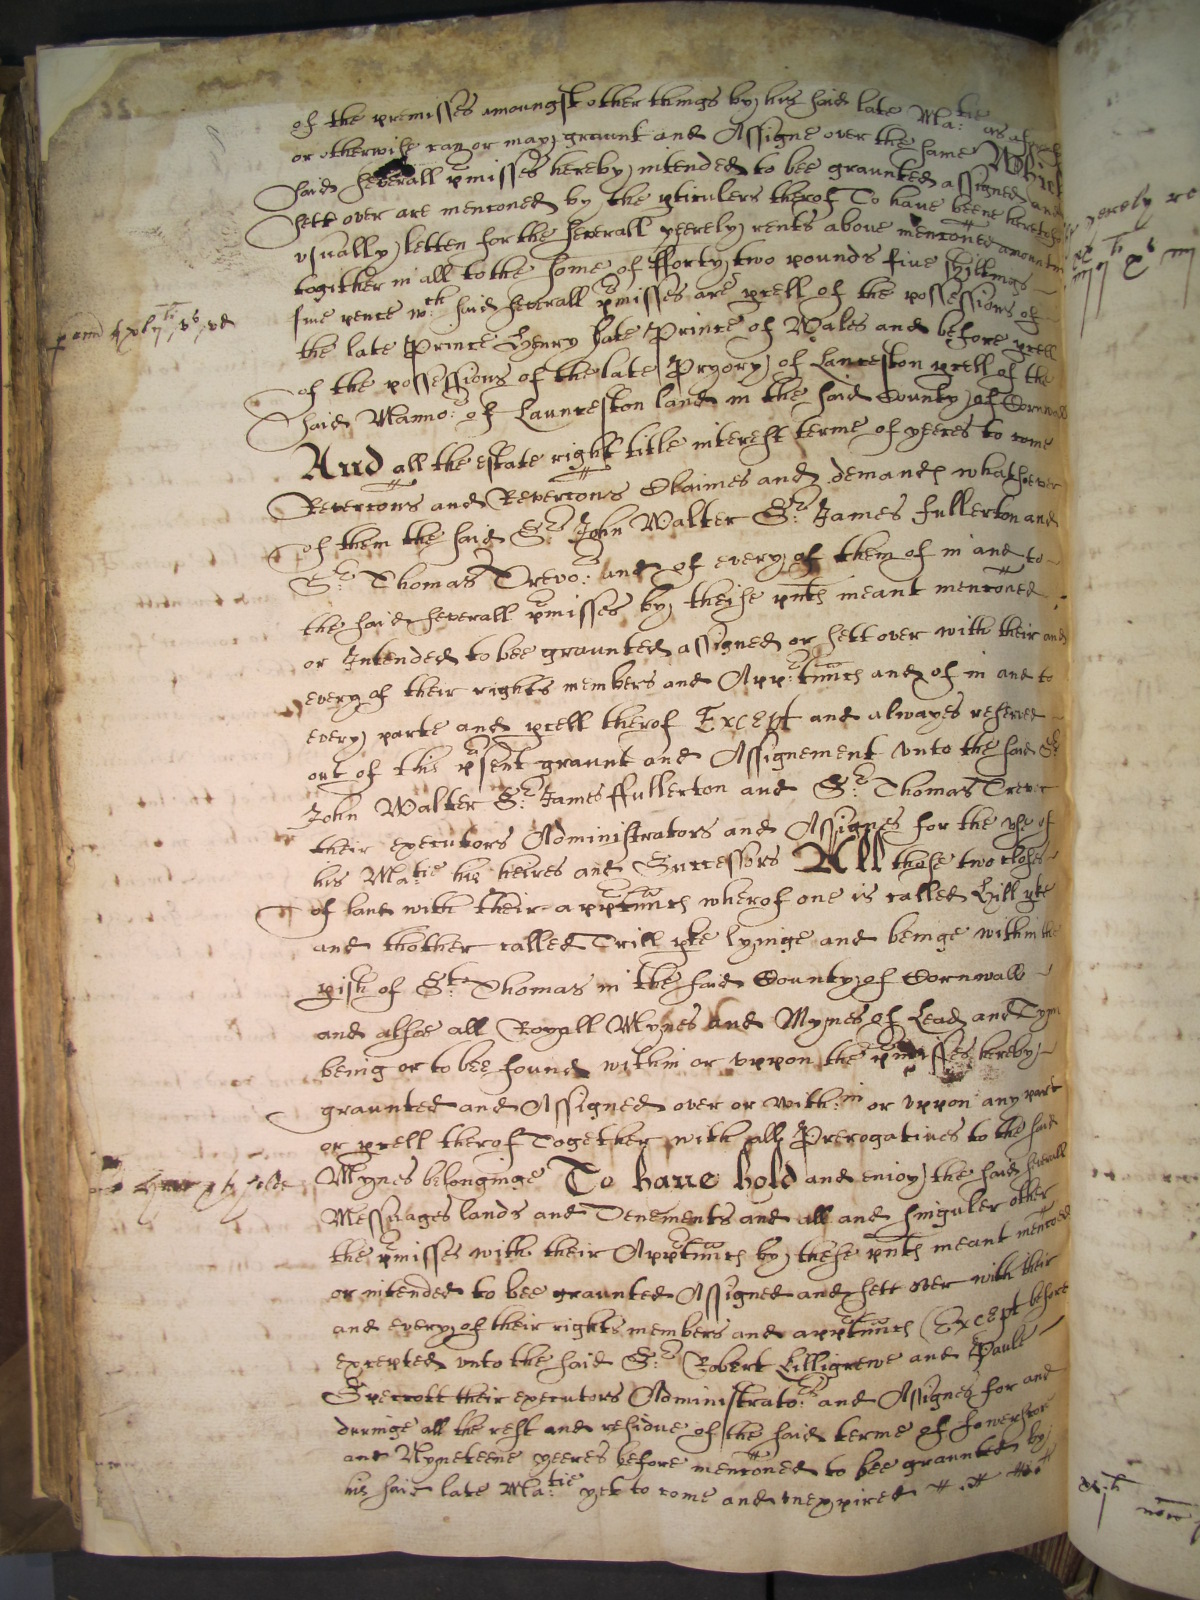 of the premisses amoungst other things by his said late Ma:tie as
or otherwise can or may graunt and Assigne over the same Which
said severall pmisses hereby intended to bee graunted assigned and
sett over are menconed by the pticulers therof To have beene heretofore
usually letten for the severall yeerely rents above menconed amountinge
togither in all to the some of fforty two pounds five shillings
five pence wch said severall pmisses are pcell of the possessions of
the late Prince Henry late Prince of Wales and before pcell
of the possessions of the late Pryory of Lanceston pcell of the
said Manno:r of Launceston land in the said County of Cornwall
And all the estate right title interest terme of yeeres to come
Revercons and Revercons Claimes and demands whatsoever
of them the said Sr: John Walter Sr: James fullerton and
Sr: Thomas Trevo:r and of every of them of in and to
the said severall pmisses by theise pnts meant menconed
or Intended to bee graunted assigned or sett over with their and
every of their rights members and App:rtnncs and of in and to
every parte and pcell therof Except and alwayes reserved
out of this psent graunt and Assignement unto the said Sr
John Walter Sr: James ffullerton and Sr: Thomas Trevor
their executors Administrators and Assignes for the use of
his Ma:tie his heires and Successors All those two closes
of land with their apprtnncs wherof one is called Hill pke
and thother called Trill pke lyinge and beinge within the
pish of St: Thomas in the said County of Cornwall
and alsoe all Royall Mynes and Mynes of Lead and Tynn
being or to bee found within or uppon the pmisses hereby
graunted and Assigned over or with:in or uppon any part
or pcell therof Together with all Prerogatives to the said
Mynes belonginge To have hold and enioy the said severall
Messuages lands and Tenements and all and singuler other
the pmisses with their Apprtnncs by these pnts meant menconed
or intended to bee graunted Assigned and sett over with their
and every of their rights members and apprtnncs (Except before
excepted unto the said Sr: Robert Killigrewe and Paule
Speccott their executors Administrato:rs and Assignes for and
duringe all the rest and residue of the said terme of fowerscore
and Nyneteene yeeres before menconed to bee graunted by
his said late Ma:tie yet to come and unexpired